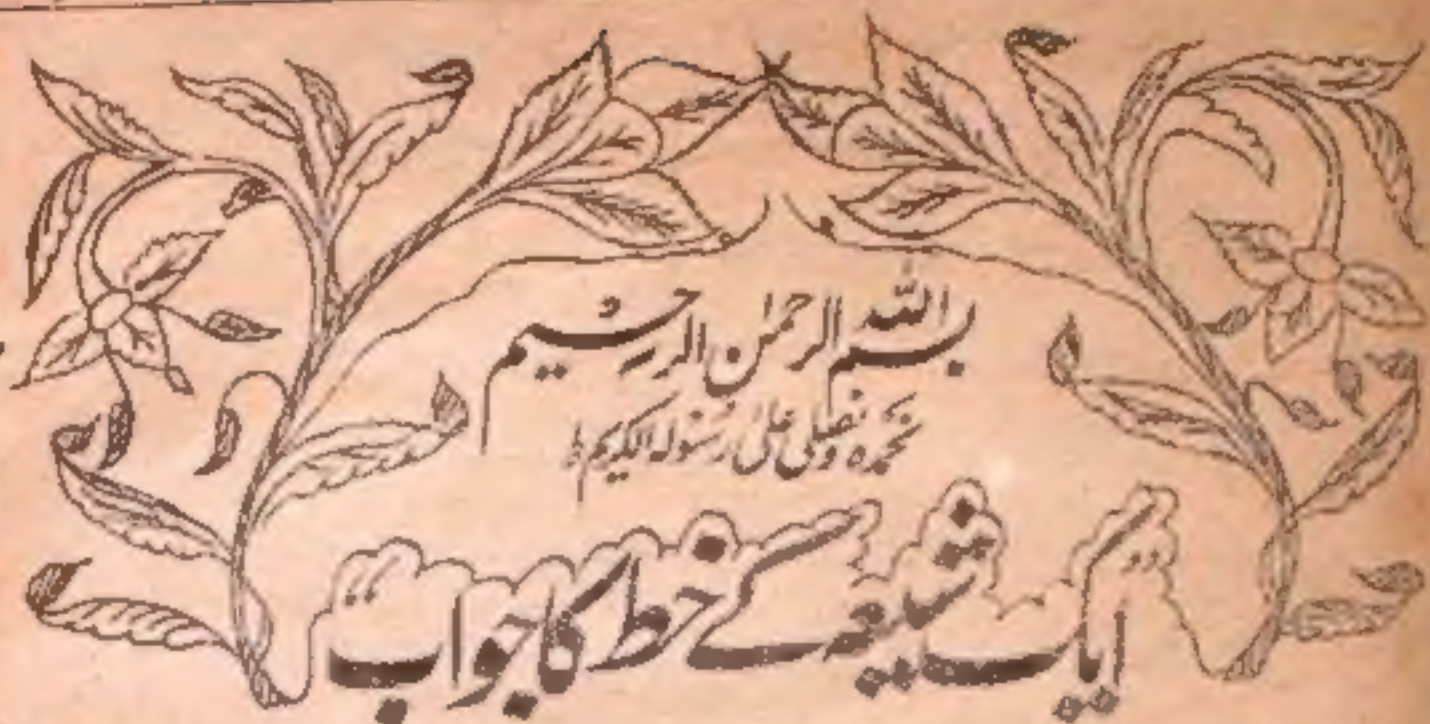 بسم اللہ الرحمٰن الرحیم
نحمدہٗ ونصلی علیٰ رسولہ الکریم ؕ
"ایک شیعہ کے خط کا جواب"